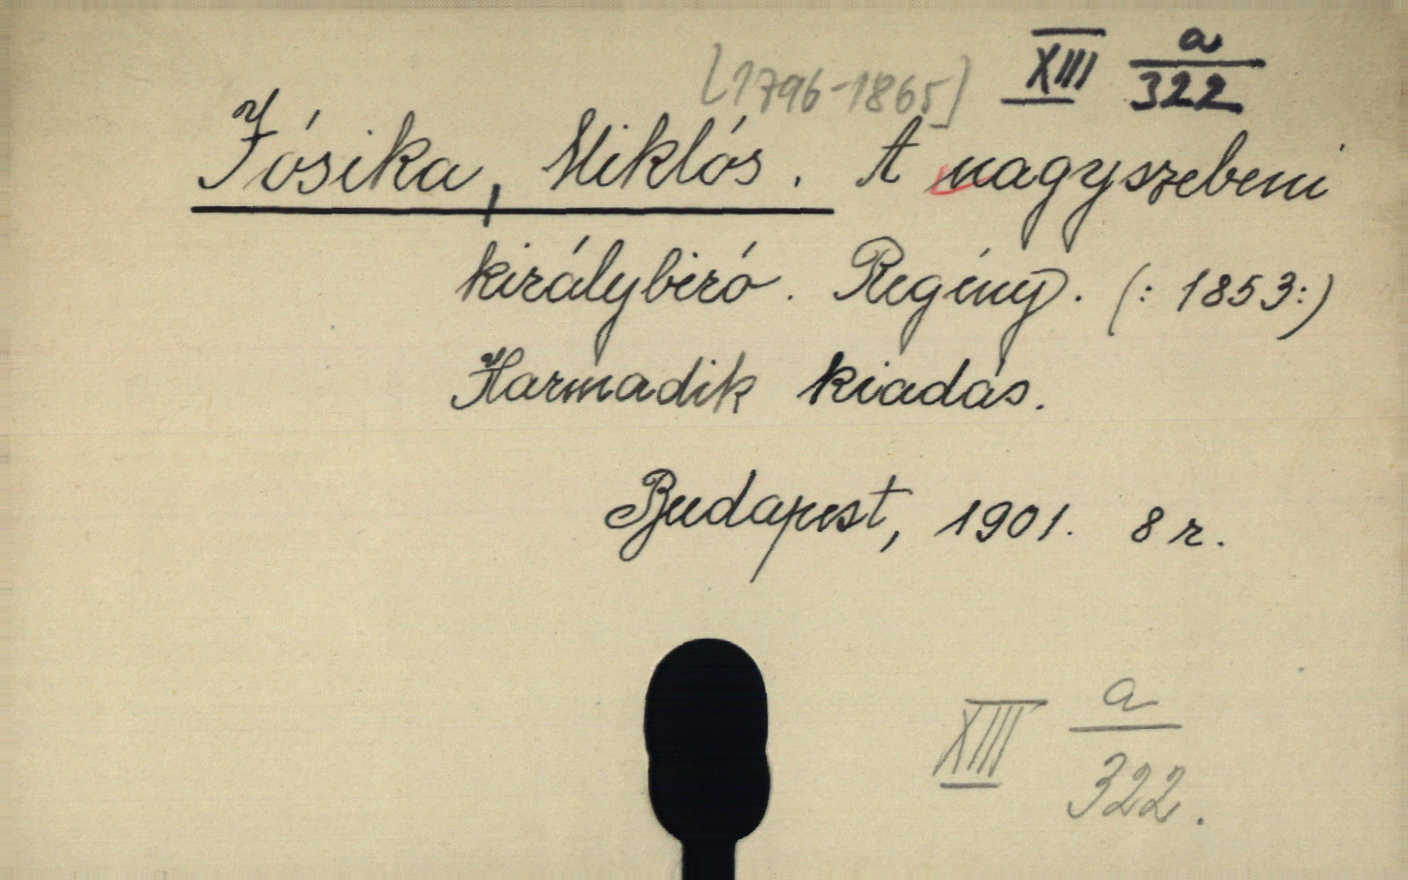 [1796-1865] XIII a/322
Jósika, Miklós. A nagyszebeni
királybiró. Regény. (: 1853:)
Harmadik kiadás.
Budapest, 1901. 8 r.
XIII a/322.